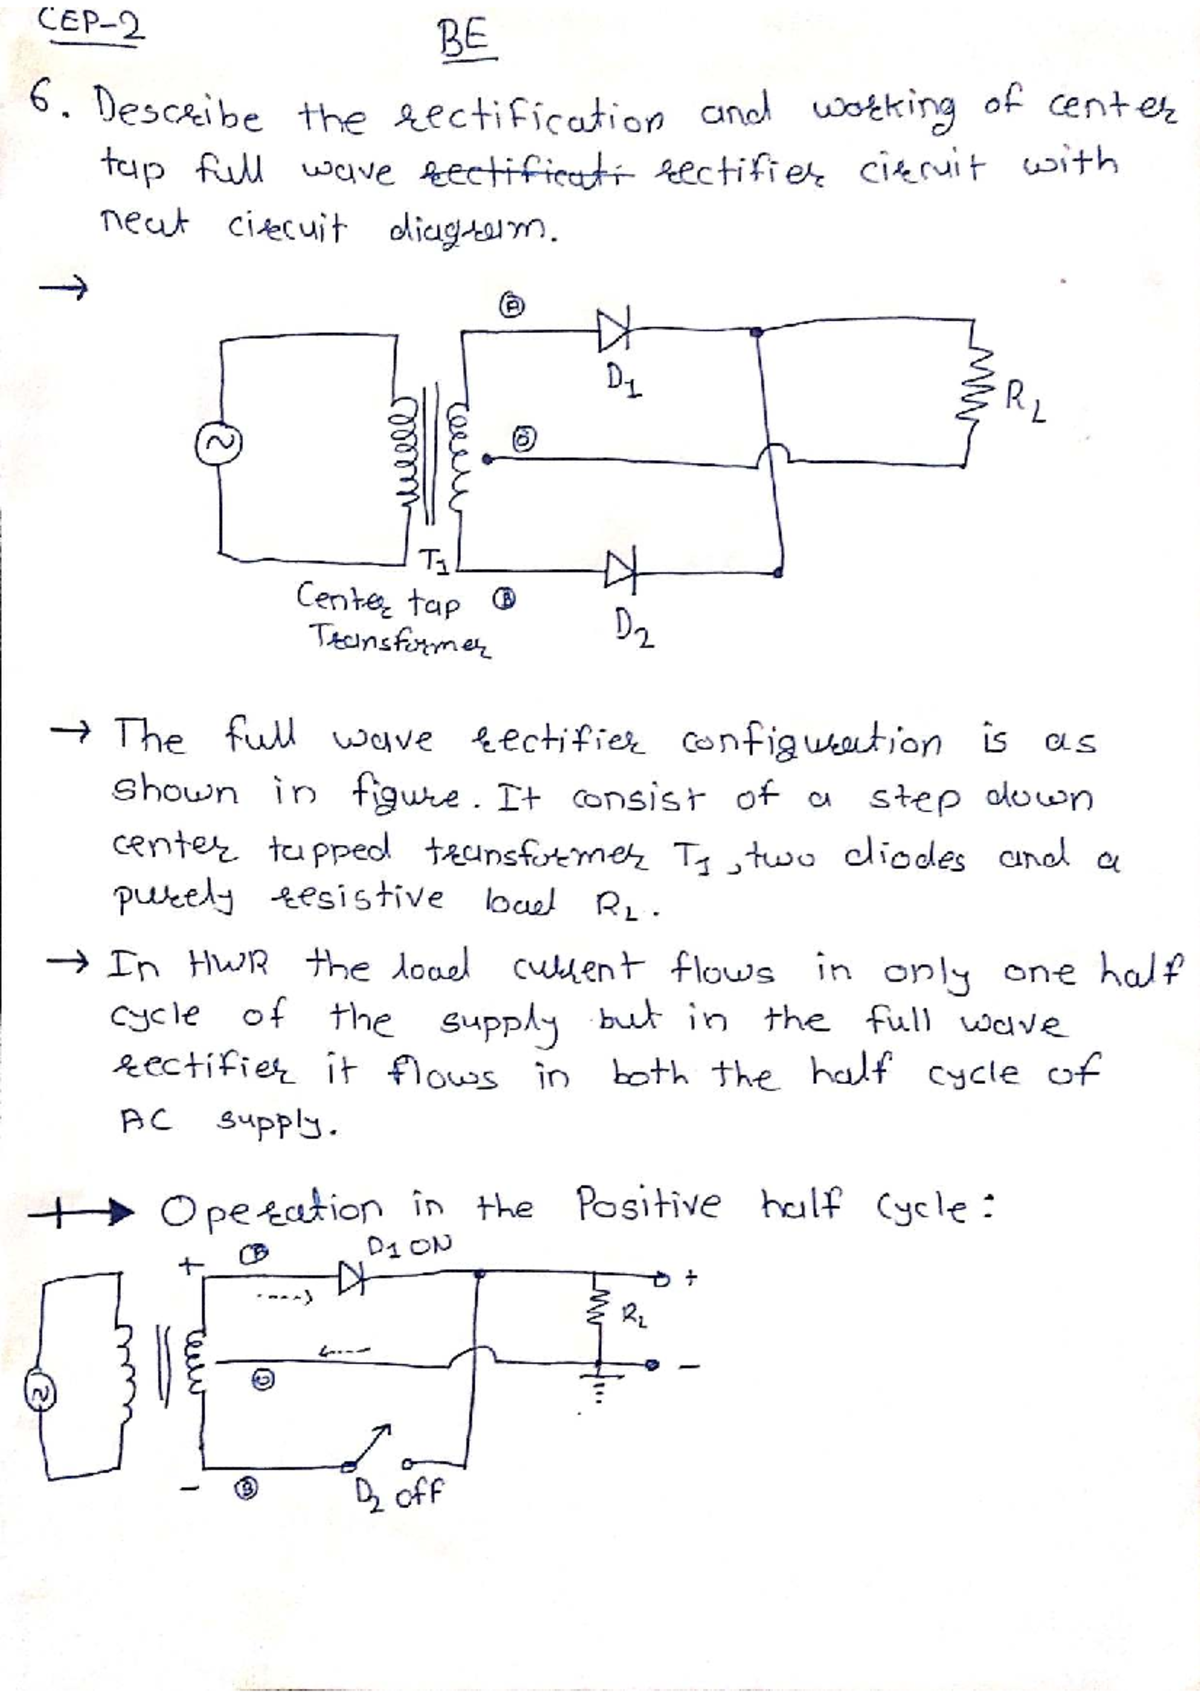 CEP-2
BE
6. Describe the rectification and working of center
tap full wave rectificati rectifier circuit with
neat circuit diagram.
→
A
D1
RL
O
T1
Center tap
Transformer
B
D2
→ The full wave rectifier configuration is as
shown in figure. It consist of a step down
center tapped transformer T1, two diodes and a
purely resistive load RL.
→ In HWR the load current flows in only one half
cycle of the supply but in the full wave
rectifier it flows in both the half cycle of
AC supply.
→ Operation in the Positive half Cycle:
+
D1 ON
+
RL
-
-
B
D2 off